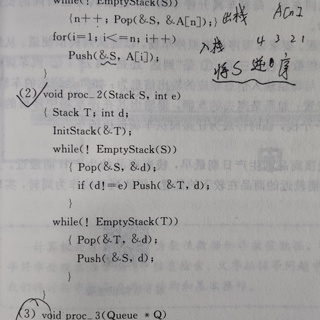 while(! EmptyStack(S))
{n++; Pop(&S, &A[n]);} 出栈 A[n]
for(i=1; i<=n; i++) 入栈 4 3 2 1
Push(&S, A[i]); 将S 逆序
}
(2) void proc_2(Stack S, int e)
{ Stack T; int d;
InitStack(&T);
while(! EmptyStack(S))
{ Pop(&S, &d);
if (d!=e) Push(&T, d);
}
while(! EmptyStack(T))
{ Pop(&T, &d);
Push( &S, d);
}
}
(3) void proc_3(Queue * Q)